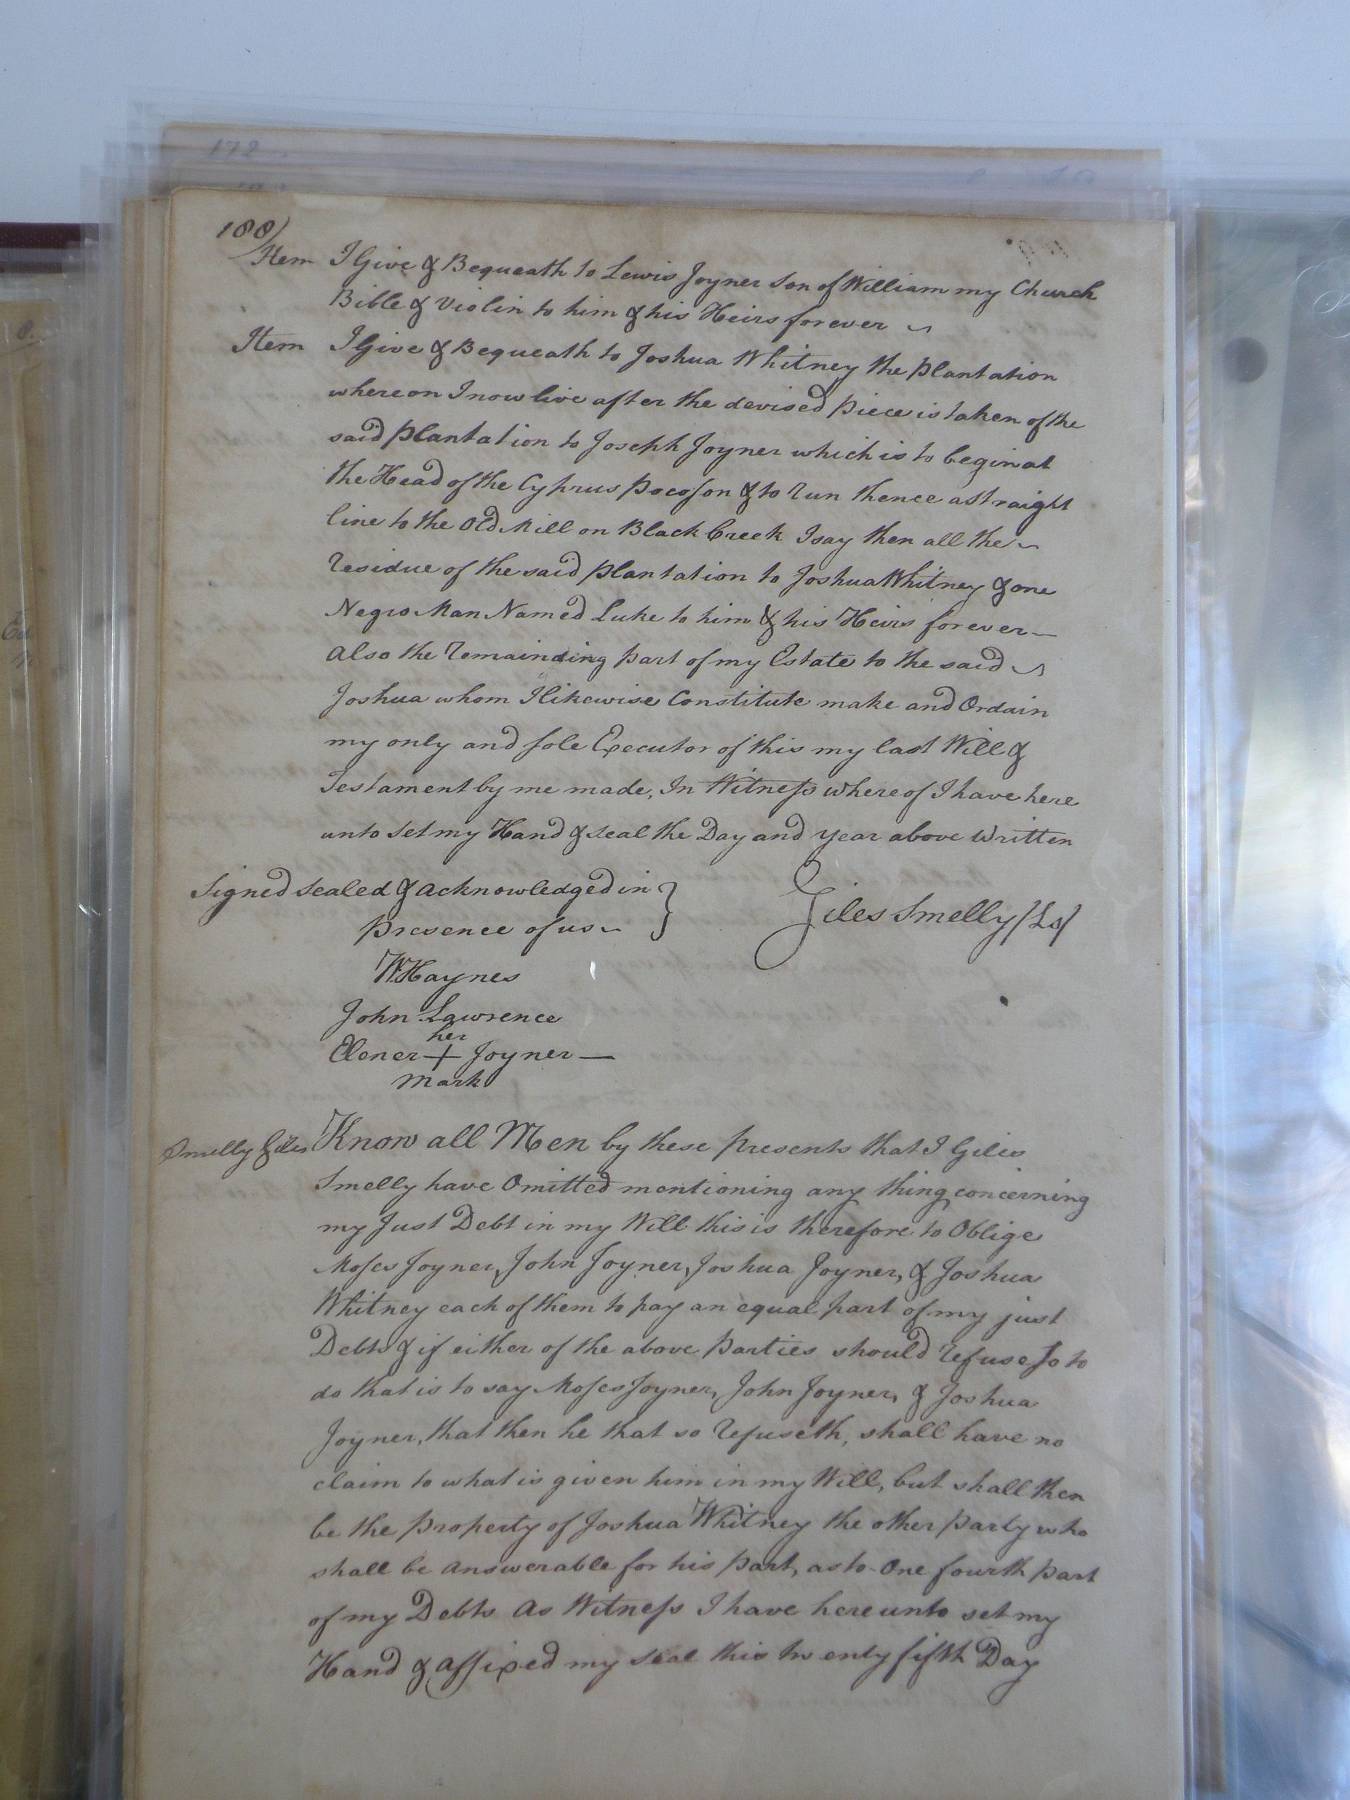 172
188
Item I Give & Bequeath to Lewis Joyner Son of William my Church
Bible & Violin to him & his Heirs forever
Item I Give & Bequeath to Joshua Whitney the Plantation
whereon I now live after the devised Piece is taken of the
said Plantation to Joseph Joyner which is to begin at
the Head of the Cyprus Pocoson & to run thence a straight
line to the Old Mill on Black Creek I say then all the
residue of the said Plantation to Joshua Whitney & one
Negro Man Named Luke to him & his Heirs forever
also the remainding part of my Estate to the said
Joshua whom I likewise Constitute make and Ordain
my only and sole Executor of this my last Will &
Testament by me made, In Witness whereof I have here
unto set my Hand & seal the Day and year above Written
Signed Sealed & acknowledged in }
Presence of us
Giles Smelly (Ls)
W Haynes
John Lawrence
her
Elener + Joyner
mark
Smelly Giles
Know all Men by these presents that I Giles
Smelly have Omitted mentioning any thing concerning
my Just Debt in my Will this is therefore to Oblige
Moses Joyner, John Joyner, Joshua Joyner, & Joshua
Whitney each of them to pay an equal part of my just
Debts & if either of the above Parties should refuse so to
do that is to say Moses Joyner, John Joyner, & Joshua
Joyner, that then he that so refuseth, shall have no
claim to what is given him in my Will, but shall then
be the Property of Joshua Whitney the other Party who
shall be answerable for his Part, as to One fourth Part
of my Debts As Witness I have hereunto set my
Hand & affixed my seal this twenty fifth Day